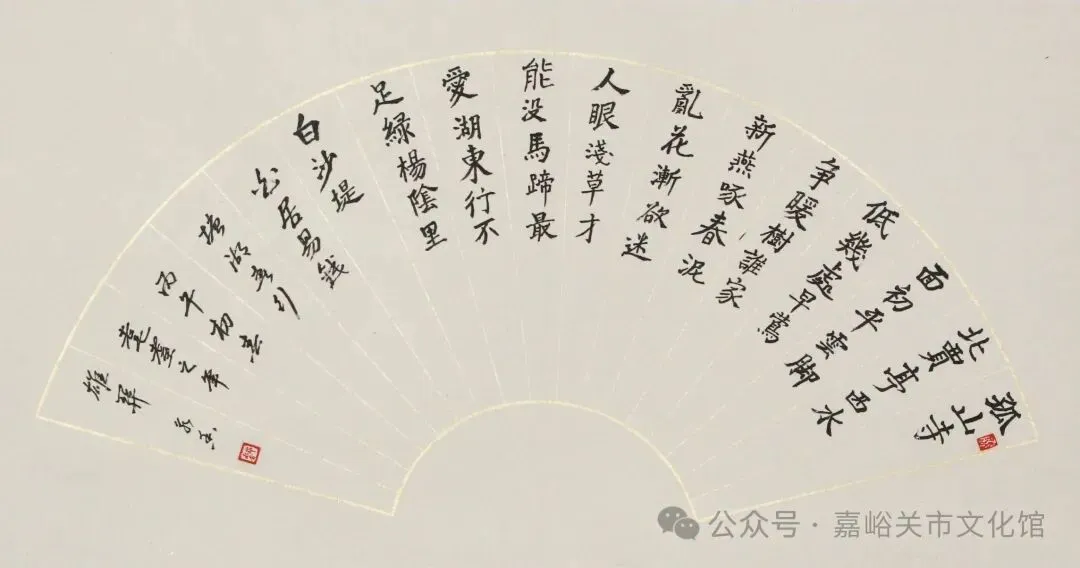 孤山寺
北賈亭西水
面初平雲脚
低幾處早鶯
争暖樹誰家
新燕啄春泥
亂花漸欲迷
人眼淺草才
能没馬蹄最
愛湖東行不
足綠楊陰里
白沙堤
白居易錢
塘湖春行
丙午初春
耄耋之年
雄
公众号·嘉峪关市文化馆